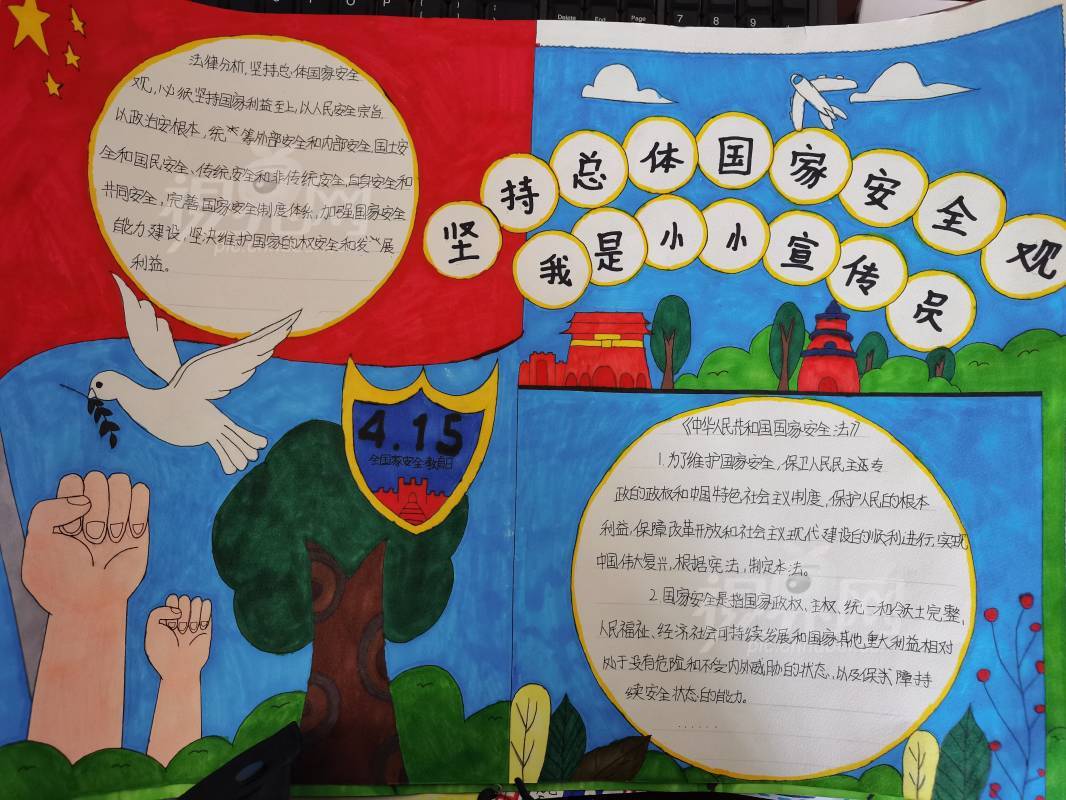 法律分析，坚持总体国家安全
观，必须坚持国家利益至上，以人民安全宗旨
以政治安根本，统筹外部安全和内部安全，国土安
全和国民安全、传统安全和非传统安全，自身安全和
共同安全，完善国家安全制度体系，加强国家安全
能力建设，坚决维护国家的权安全和发展
利益。
坚持总体国家安全观
我是小小宣传员
4.15
全国家安全教育日
《中华人民共和国国家安全法》
1.为了维护国家安全，保卫人民民主专
政的政权和中国特色社会主义制度，保护人民的根本
利益，保障改革开放和社会主义现代建设的顺利进行，实现
中国伟大复兴，根据宪法，制定本法。
2.国家安全是指国家政权、主权、统一和领土完整、
人民福祉、经济社会可持续发展和国家其他重大利益相对
处于没有危险和不受内外威胁的状态，以及保障持
续安全状态的能力。
......
Delete End Page 7 8 9